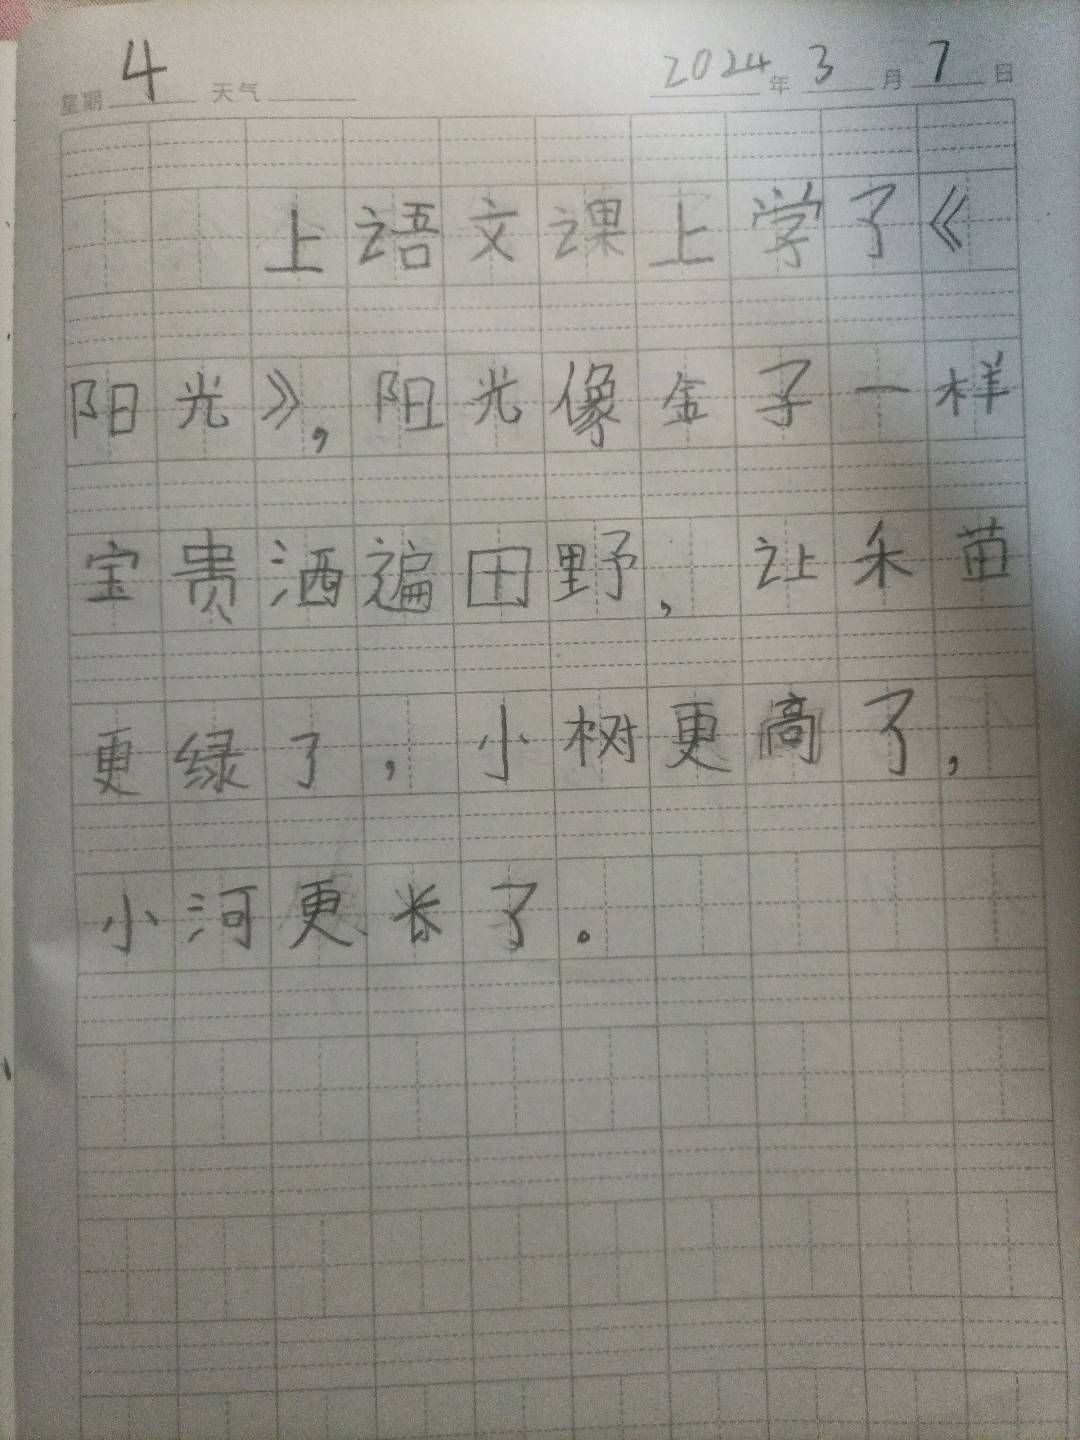 星期 4 天气 2024年 3月 7日
上语文课上学了《
阳光》，阳光像金子一样
宝贵洒遍田野，让禾苗
更绿了，小树更高了，
小河更长了。